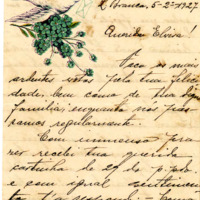 Branca, 5-2-1927
Querida Elvira!
Faço os mais
ardentes votos pela tua felici-
dade, bem como de tua
familia, enquanto nós pas-
samos regularmente.
Com immenso pra-
zer recebi tua querida
cartinha de 29 do p. pdo
e com igual